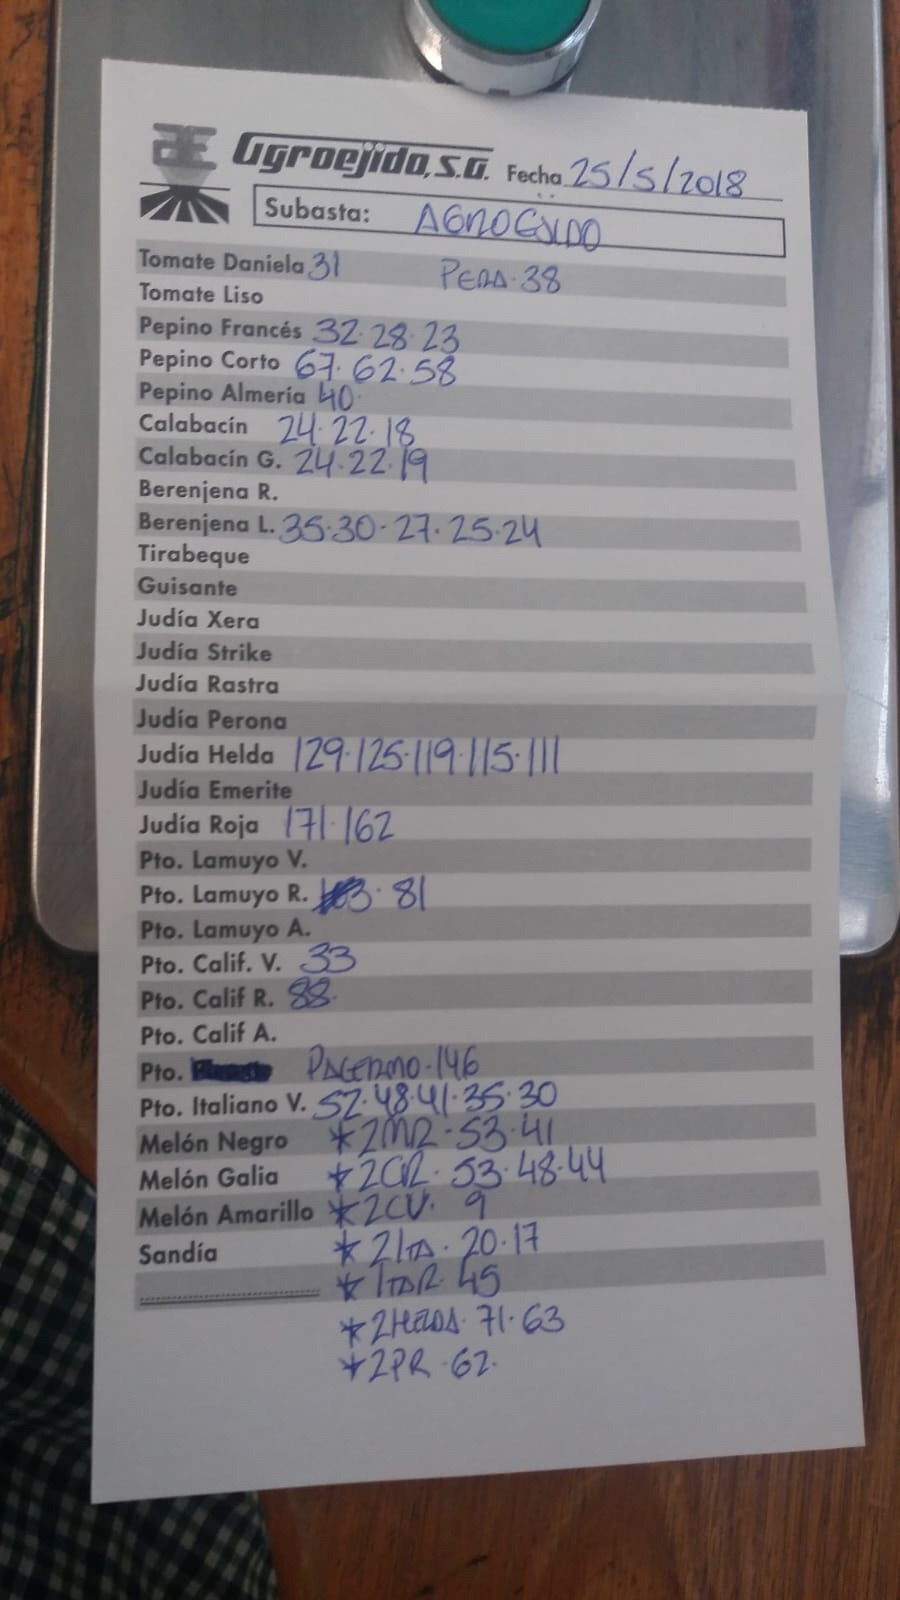 Agroejido, S.A. Fecha 25/5/2018
Subasta: AGROEJIDO
Tomate Daniela 31 PERA·38
Tomate Liso
Pepino Francés 32·28·23
Pepino Corto 67·62·58
Pepino Almería 40·
Calabacín 24·22·18
Calabacín G. 24·22·19
Berenjena R.
Berenjena L. 35·30·27·25·24
Tirabeque
Guisante
Judía Xera
Judía Strike
Judía Rastra
Judía Perona
Judía Helda 129·125·119·115·111
Judía Emerite
Judía Roja 171·162
Pto. Lamuyo V.
Pto. Lamuyo R. 81
Pto. Lamuyo A.
Pto. Calif. V. 33
Pto. Calif R. 88·
Pto. Calif A.
Pto. PALERMO·146
Pto. Italiano V. 52·48·41·35·30
Melón Negro *2MR·53·41
Melón Galia *2CR·53·48·44
Melón Amarillo *2CV·9
Sandía *2ITA·20·17
*ITAR·45
*2HELDA·71·63
*2PR·62·